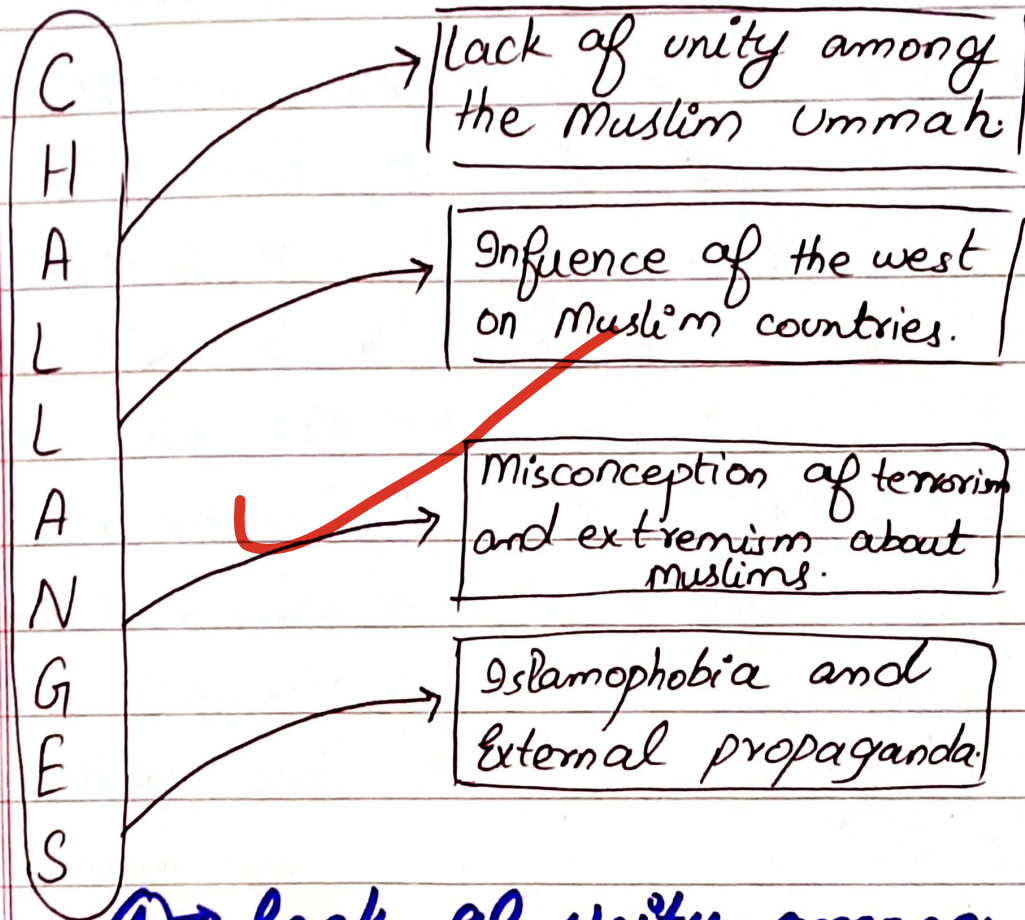 CHALLANGES
Lack of unity among
the Muslim Ummah.
Infuence of the west
on Muslim countries.
Misconception of terrorism
and extremism about
muslims.
Islamophobia and
External propaganda.
①→ Lack of unity among